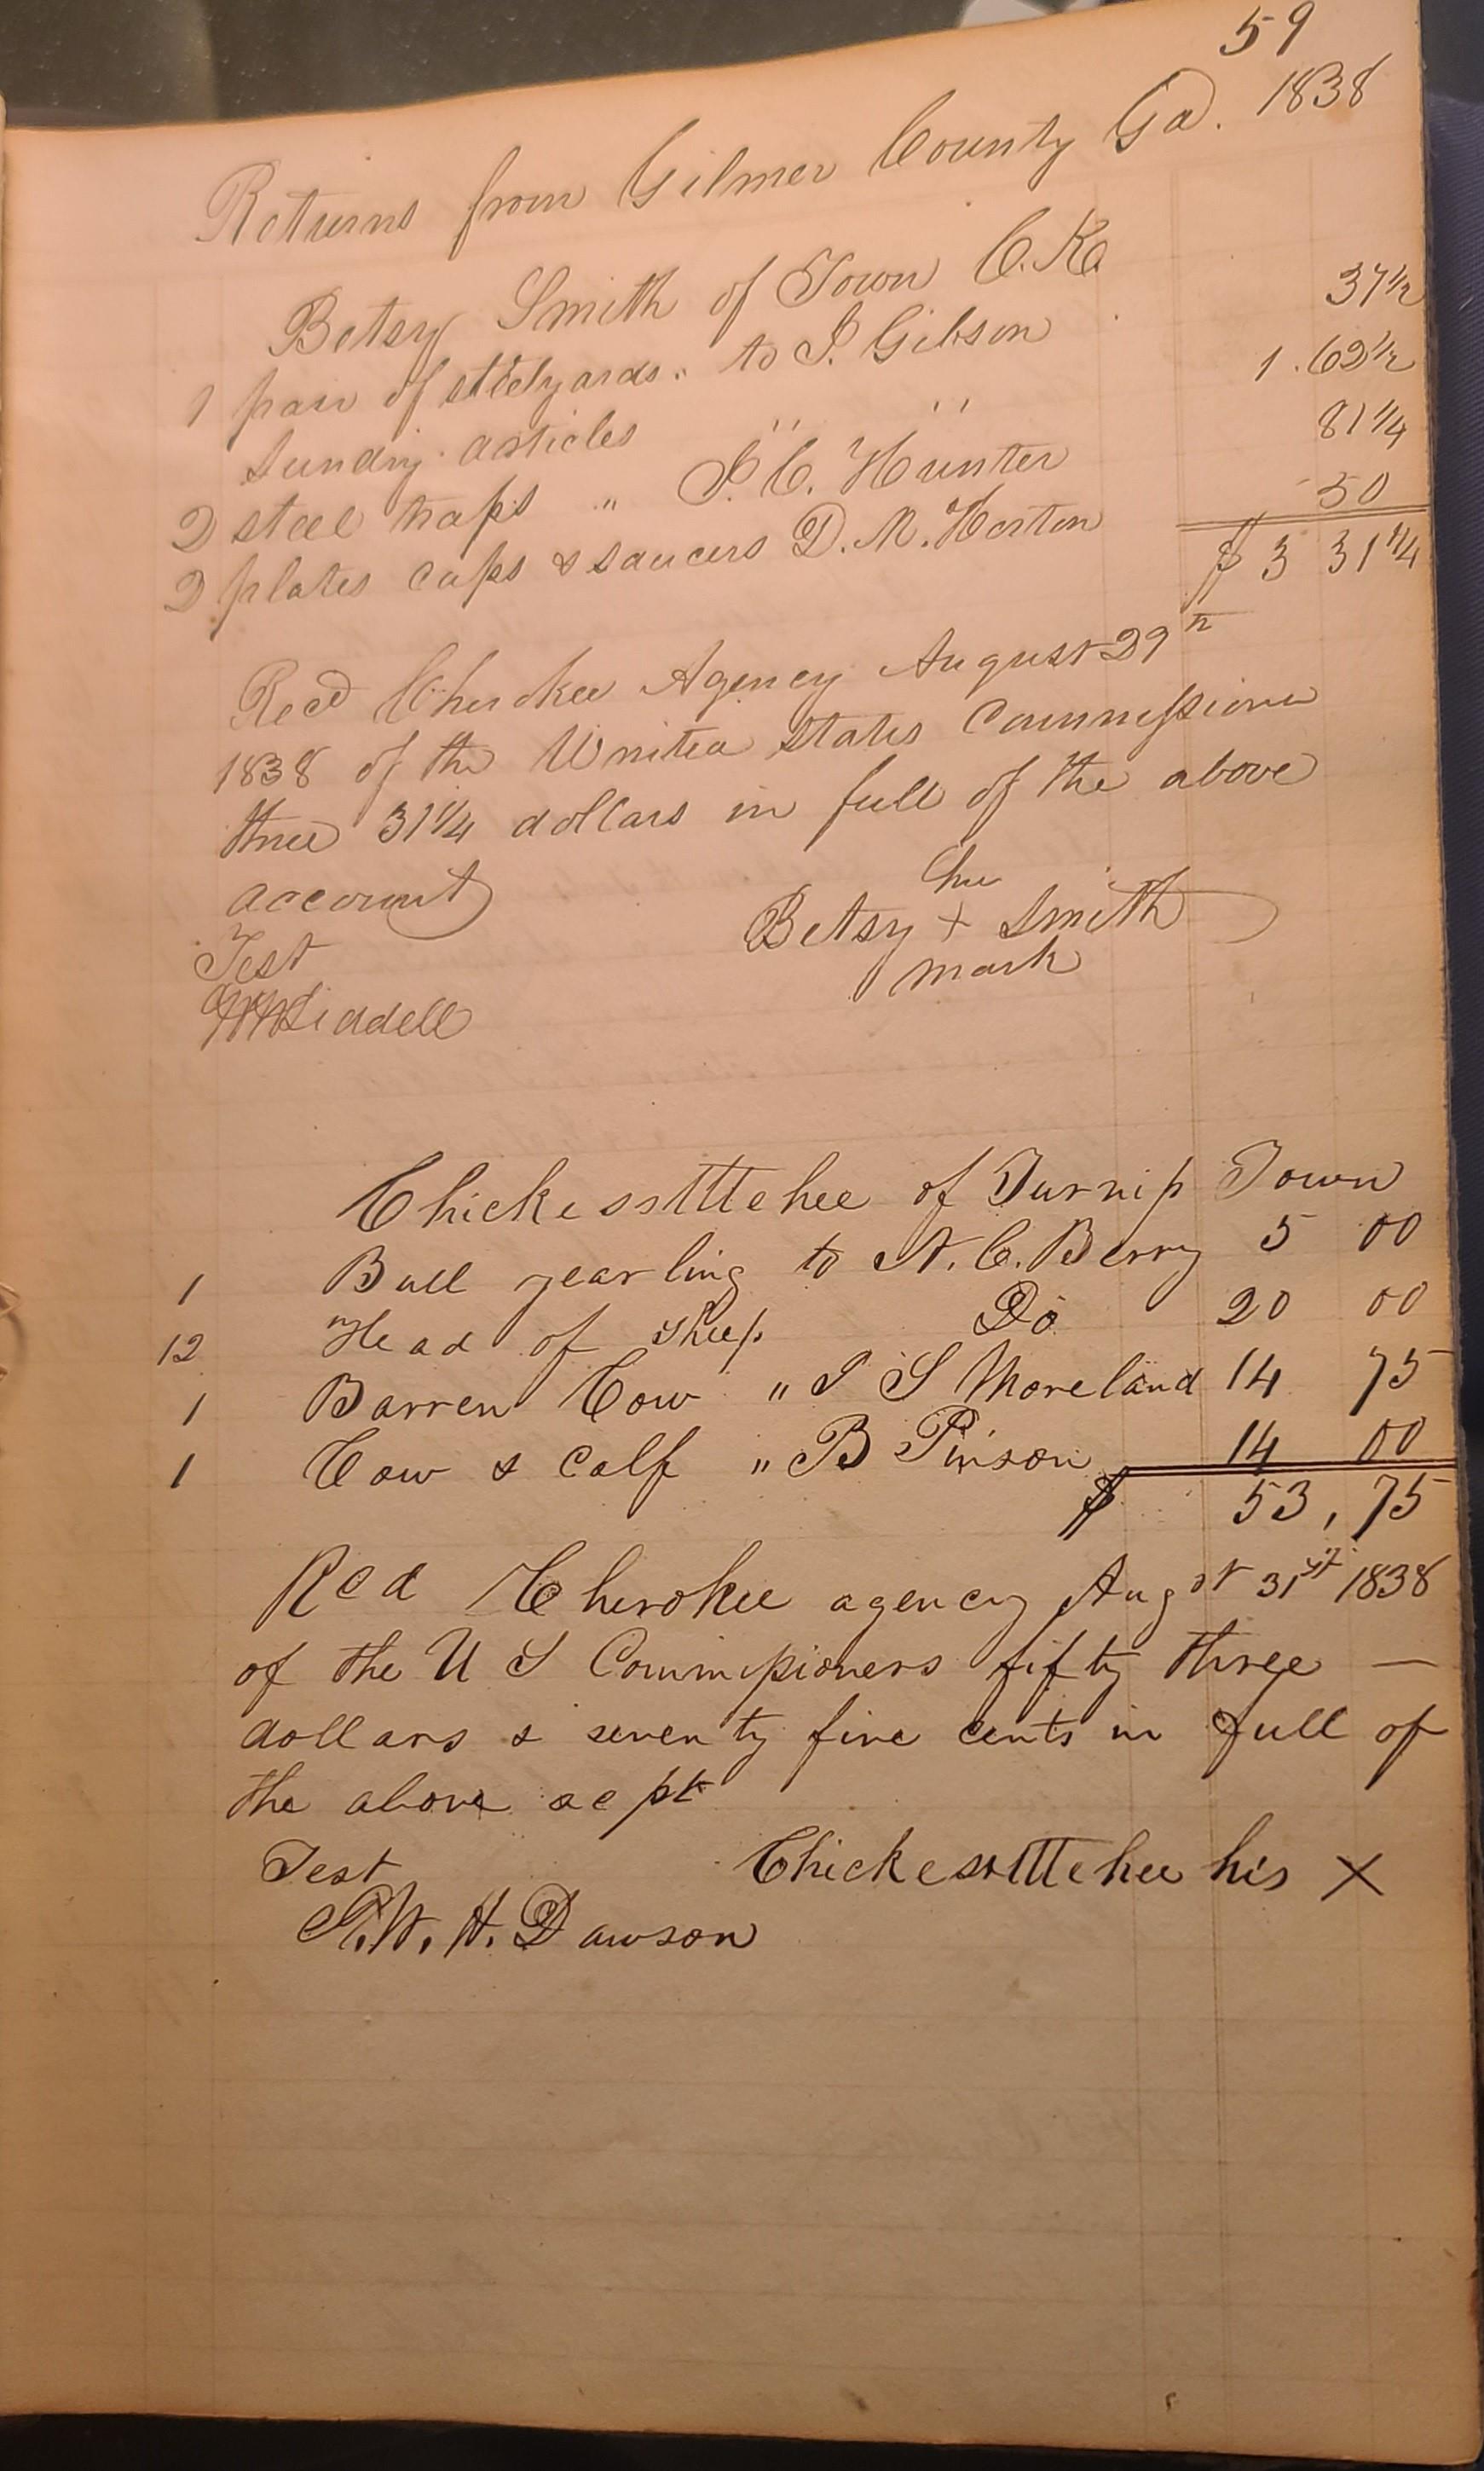 59
Returns from Gilmer County Ga. 1838
Betsy Smith of Town C.K.
1 pair of steelyards " to J. Gibson 37 1/2
Sundry articles " " 1.62 1/2
2 steel traps " J. C. Hunter 81 1/4
2 plates cups & saucers D. M. Horton 50
$ 3 31 1/4
Recd Cherokee Agency August 29th
1838 of the United States Commissioner
three 31 1/4 dollars in full of the above
account
her
Betsy + Smith
mark
Test
Liddell
Chickessttehee of Turnip Town
1 Bull yearling to N. C. Berry 5 00
12 Head of Sheep Do 20 00
1 Barren Cow " J S Moreland 14 75
1 Cow & Calf " B Pinson 14 00
$ 53,75
Rcd Cherokee agency Augst 31st 1838
of the U S Commissioners fifty three —
dollars & seventy five cents in full of
the above acpt
Test Chickessttehee his X
W. H. Dawson